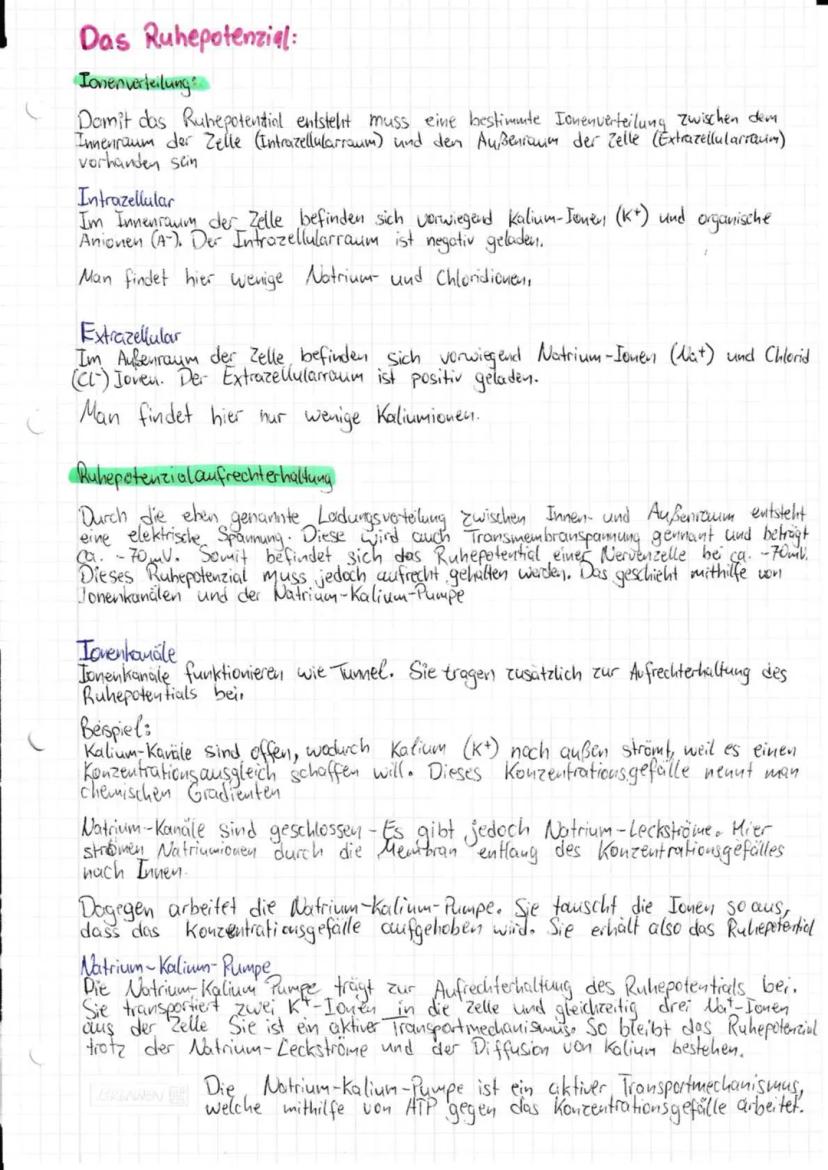 Das Ruhepotenzial:
Ionenverteilung:
Damit das Ruhepotential entsteht muss eine bestimmte Ionenverteilung zwischen dem
Innenraum der Zelle (Intrazellularraum) und den Außenraum der Zelle (Extrazellularraum)
vorhanden sein
Intrazellular
Im Innenraum der Zelle befinden sich vorwiegend Kalium-Ionen (K+) und organische
Anionen (A-). Der Intrazellularraum ist negativ geladen.
Man findet hier wenige Natrium- und Chloridionen.
Extrazellular
Im Außenraum der Zelle befinden sich vorwiegend Natrium-Ionen (Na+) und Chlorid
(Cl-) Ionen. Der Extrazellularraum ist positiv geladen.
Man findet hier nur wenige Kaliumionen.
Ruhepotenzialaufrechterhaltung
Durch die eben genannte Ladungsverteilung zwischen Innen- und Außenraum entsteht
eine elektrische Spannung. Diese wird auch Transmembranspannung gennant und beträgt
ca. -70mV. Somit befindet sich das Ruhepotential einer Nervenzelle bei ca. -70mV.
Dieses Ruhepotenzial muss jedoch aufrecht gehalten werden. Das geschieht mithilfe von
Ionenkanälen und der Natrium-Kalium-Pumpe
Ionenkanäle
Ionenkanäle funktionieren wie Tunnel. Sie tragen zusätzlich zur Aufrechterhaltung des
Ruhepotentials bei.
Beispiel:
Kalium-Kanäle sind offen, wodurch Kalium (K+) nach außen strömt, weil es einen
Konzentrationsausgleich schaffen will. Dieses Konzentrationsgefälle nennt man
chemischen Gradienten
Natrium-Kanäle sind geschlossen - Es gibt jedoch Natrium-Leckströme. Hier
strömen Natriumionen durch die Membran entlang des Konzentrationsgefälles
nach Innen.
Dagegen arbeitet die Natrium-Kalium-Pumpe. Sie tauscht die Ionen so aus,
dass das Konzentrationsgefälle aufgehoben wird. Sie erhält also das Ruhepotential
Natrium-Kalium-Pumpe
Die Natrium-Kalium Pumpe trägt zur Aufrechterhaltung des Ruhepotentials bei.
Sie transportiert zwei K+-Ionen in die Zelle und gleichzeitig drei Na+-Ionen
aus der Zelle Sie ist ein aktiver Transportmechanismus. So bleibt das Ruhepotenzial
trotz der Natrium-Leckströme und der Diffusion von Kalium bestehen.
Die Natrium-Kalium-Pumpe ist ein aktiver Transportmechanismus,
welche mithilfe von ATP gegen das Konzentrationsgefälle arbeitet.